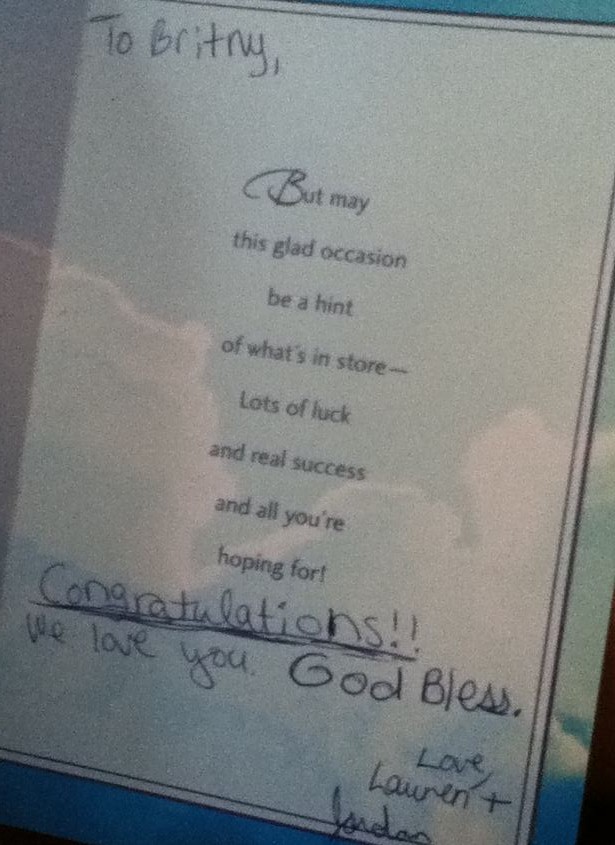 To Britny,
But may
this glad occasion
be a hint
of what's in store—
Lots of luck
and real success
and all you're
hoping for!
Congratulations!!
We love you. God Bless.
Love,
Lauren +
Jordan